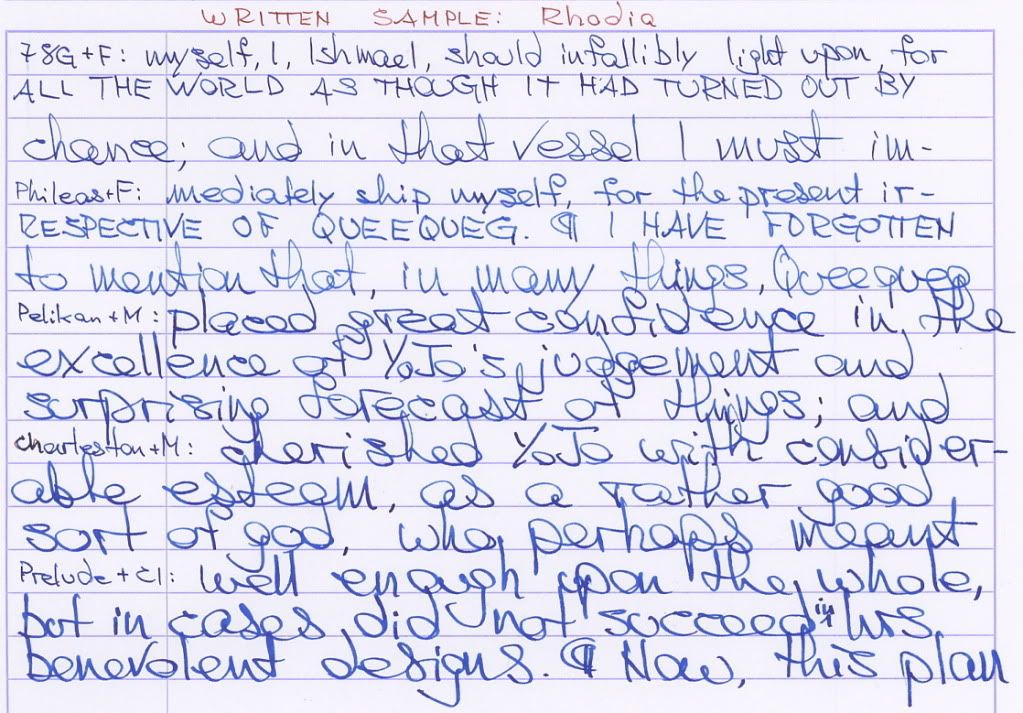 WRITTEN SAMPLE: Rhodia
78G+F: myself, I, Ishmael, should infallibly light upon, for
ALL THE WORLD AS THOUGH IT HAD TURNED OUT BY
chance; and in that vessel I must im-
Phileas+F: mediately ship myself, for the present ir-
RESPECTIVE OF QUEEQUEG. ¶ I HAVE FORGOTTEN
to mention that, in many things, Queequeg
Pelikan+M: placed great confidence in the
excellence of YoJo's judgement and
surprising forecast of things; and
Charleston+M: cherished YoJo with consider-
able esteem, as a rather good
sort of god, who perhaps meant
Prelude+cl: well enough upon the whole,
but in cases did not succeed in his
benevolent designs. ¶ Now, this plan